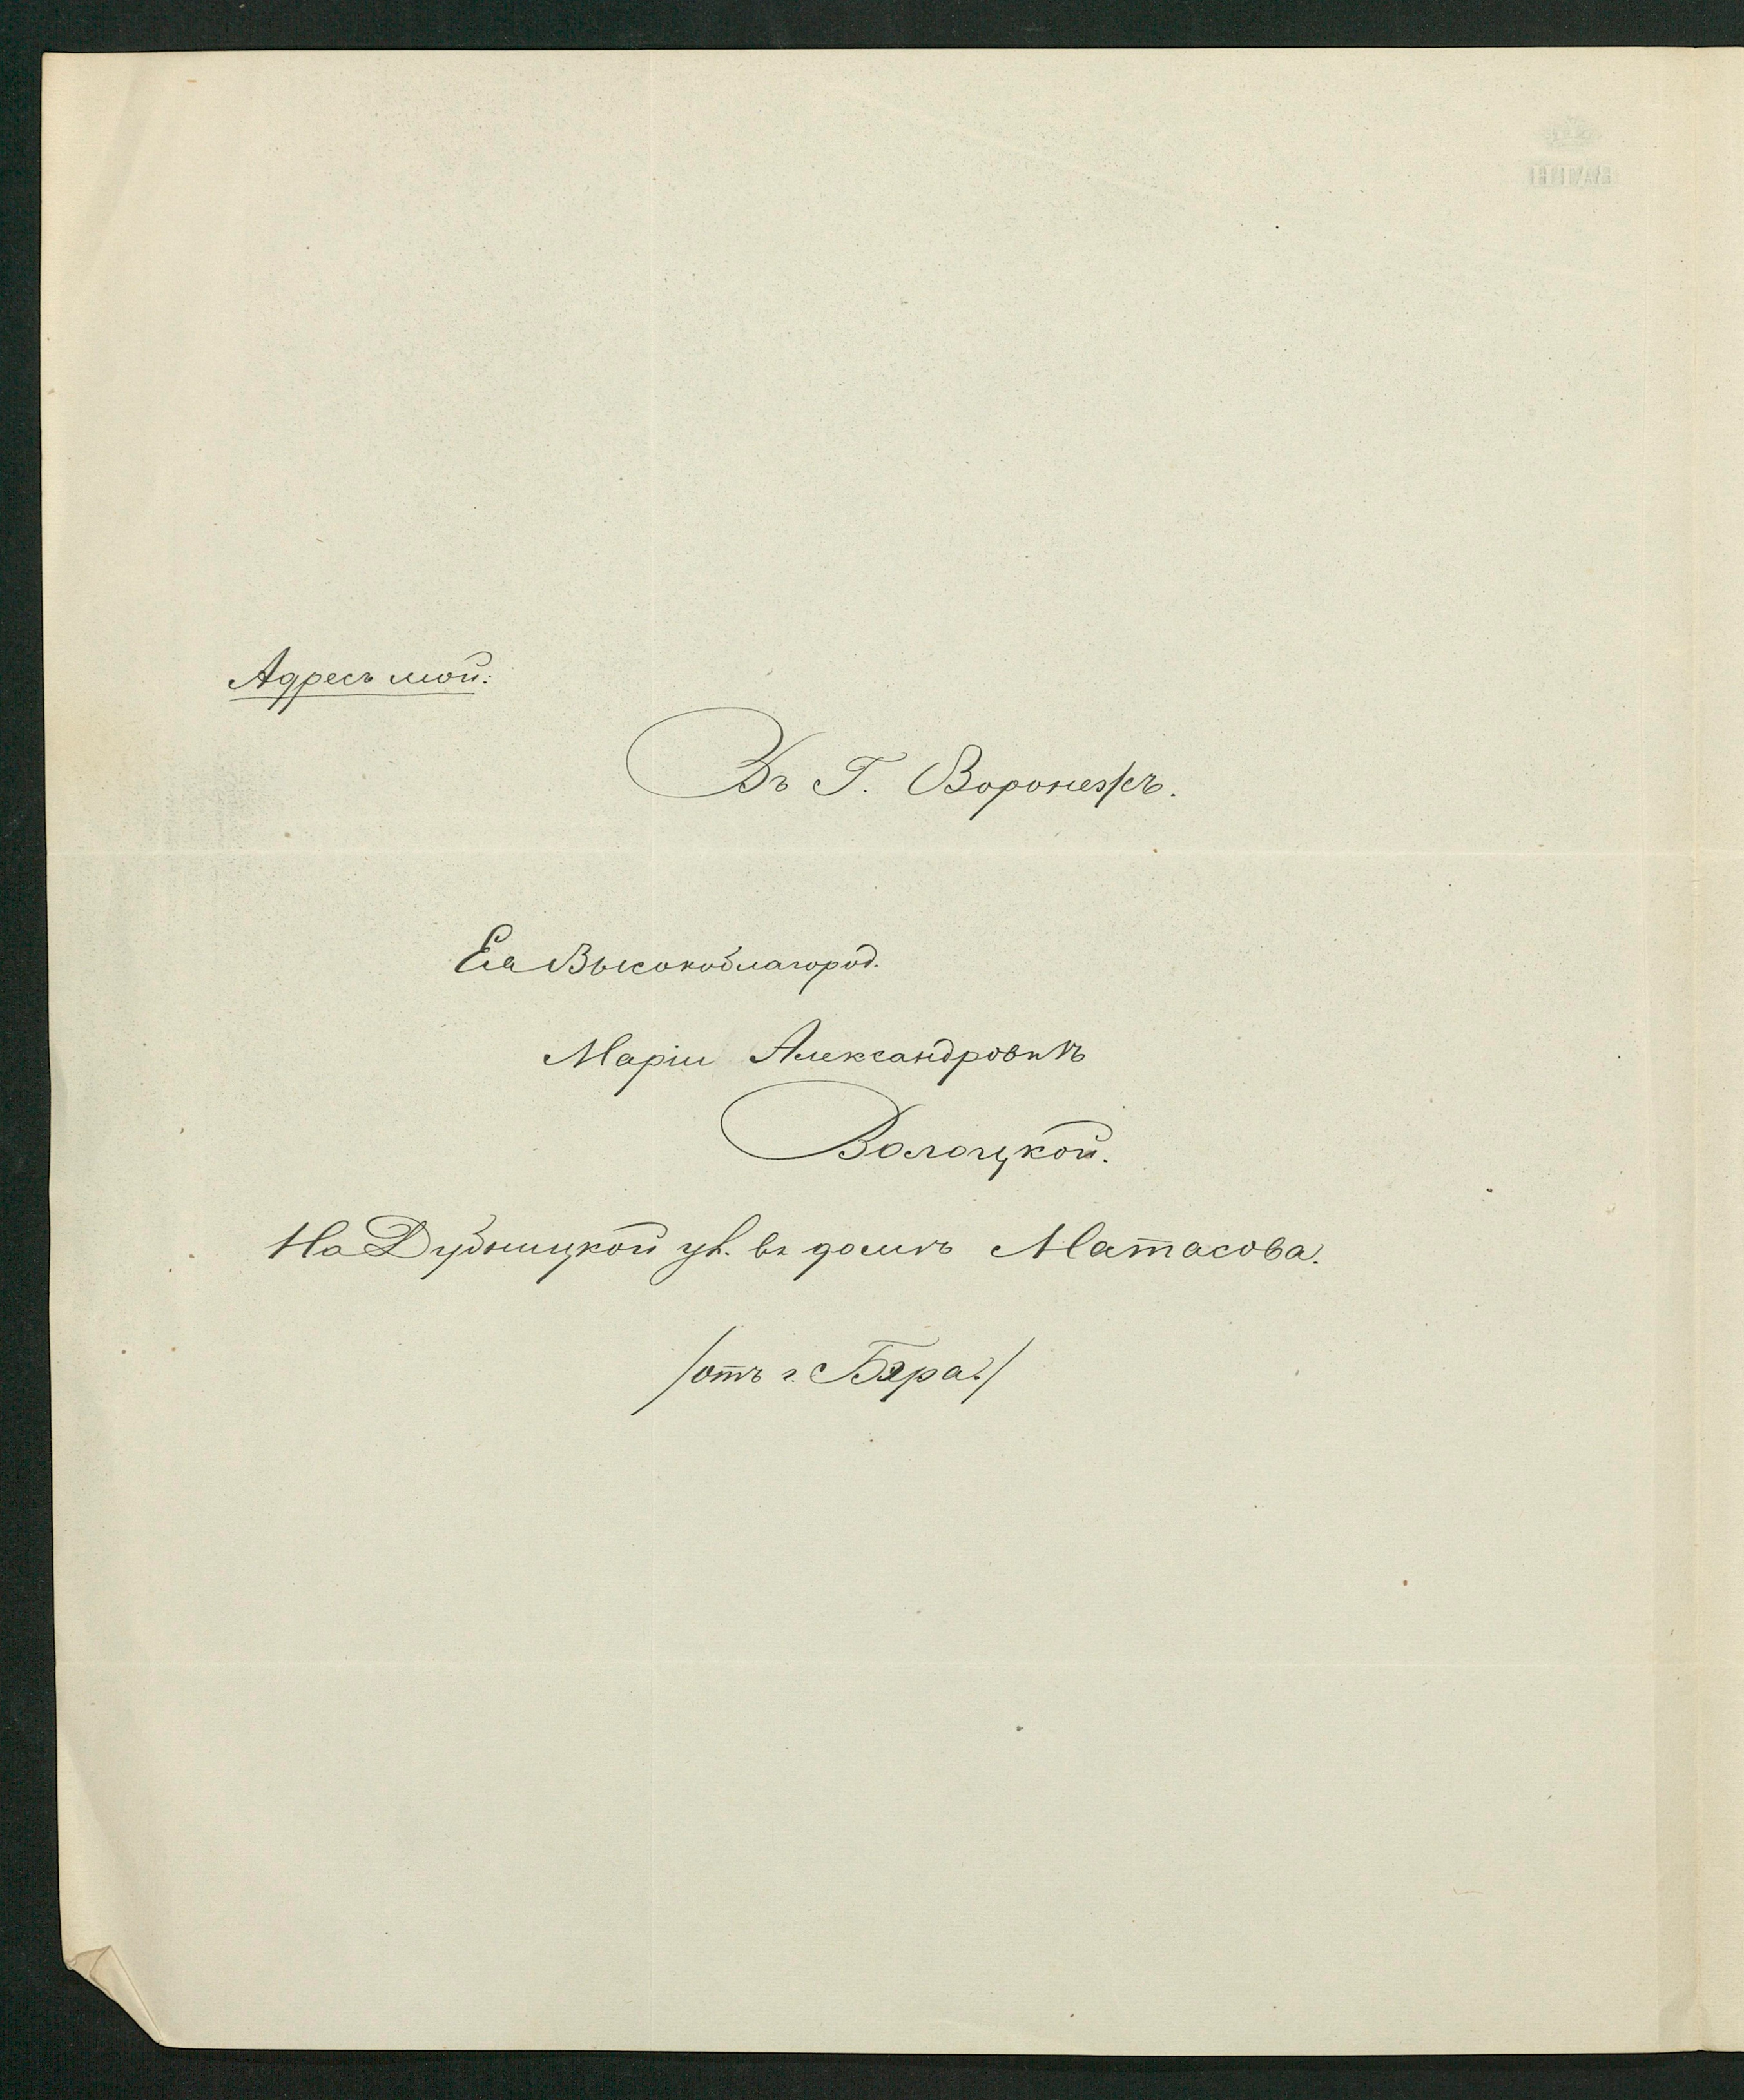 Адресъ мой:
Въ Г. Воронежъ.
Ея Высокоблагород.
Маріи Александровнѣ
Волоцкой.
На Дубницкой ул. въ домѣ Матасова.
/отъ г. Бэра/